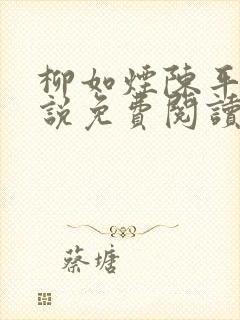 柳如煙陳平
說免費閱讀
蔡塘